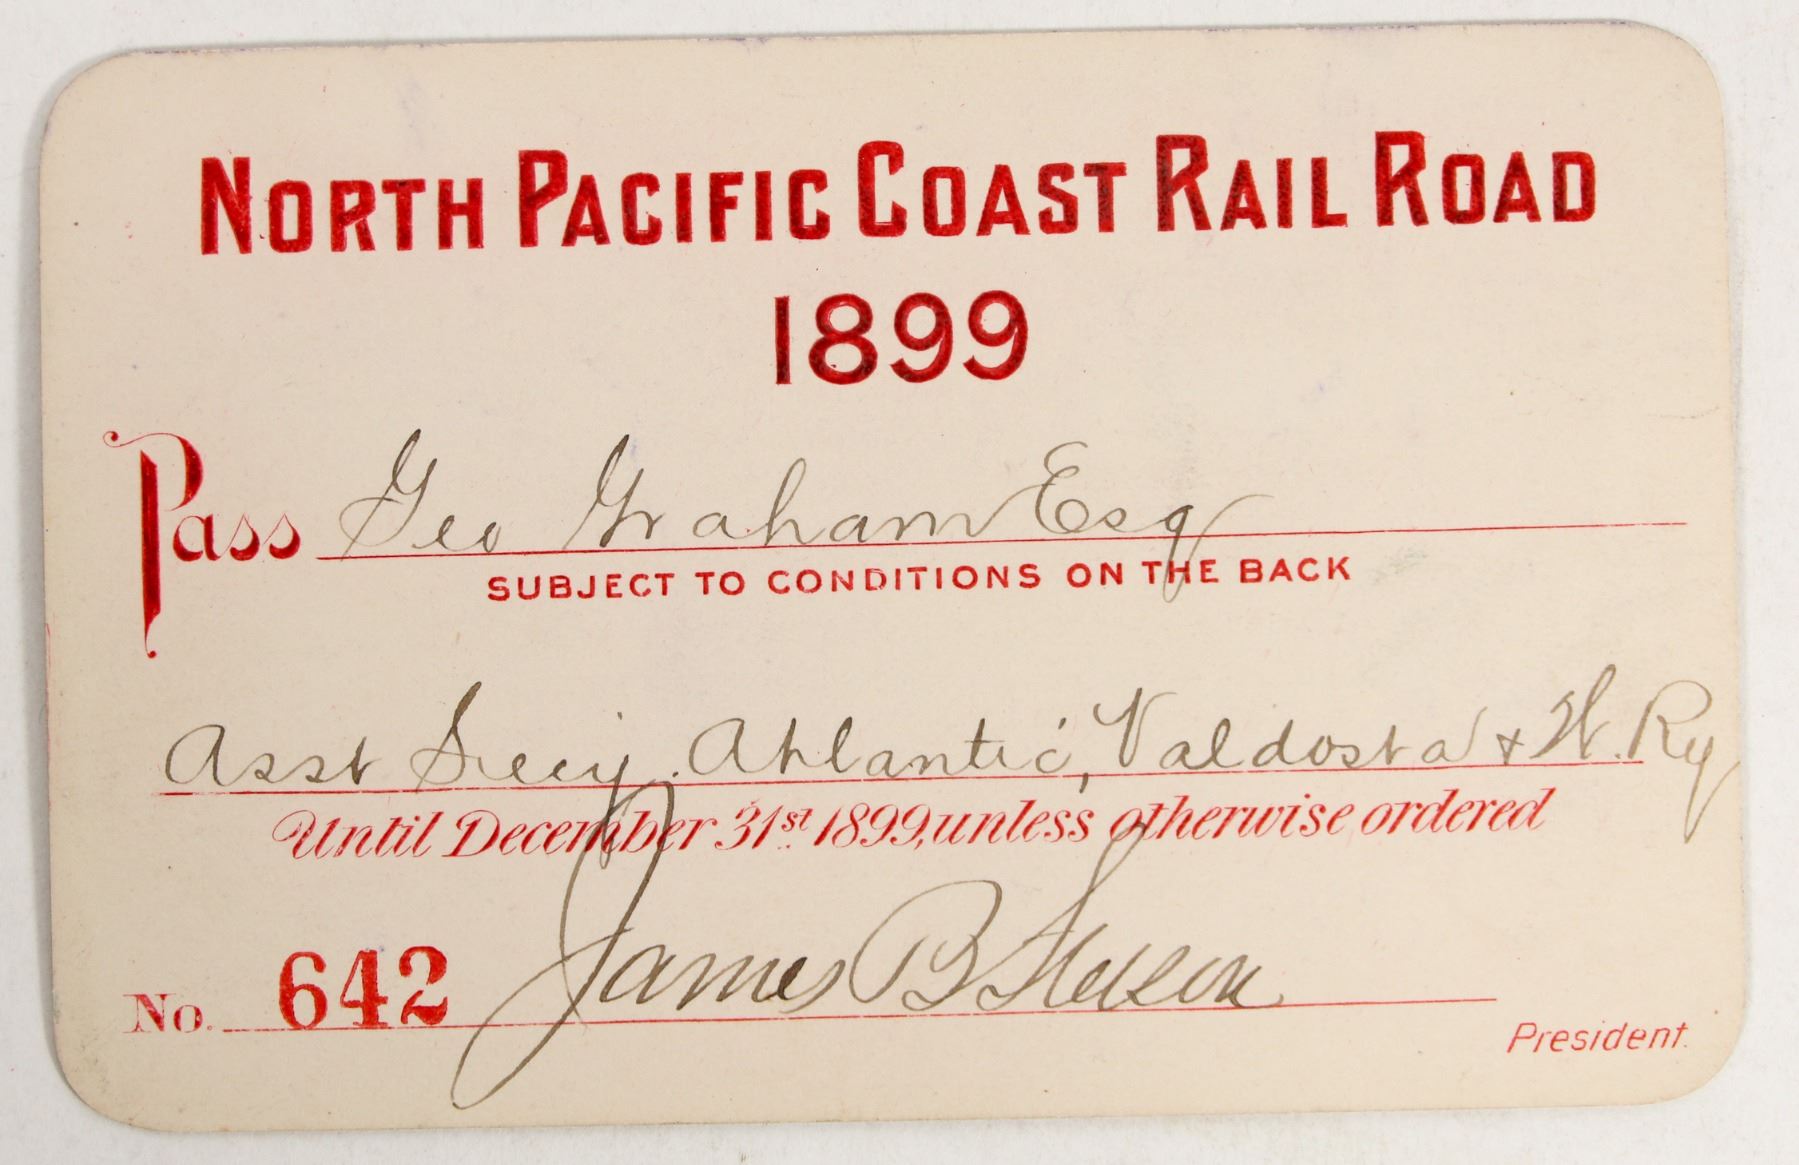 NORTH PACIFIC COAST RAIL ROAD
1899
Pass Geo Graham Esq
SUBJECT TO CONDITIONS ON THE BACK
Asst Secy. Atlantic, Valdosta & W. Ry
Until December 31st 1899, unless otherwise ordered
No. 642 James B Stetson
President.